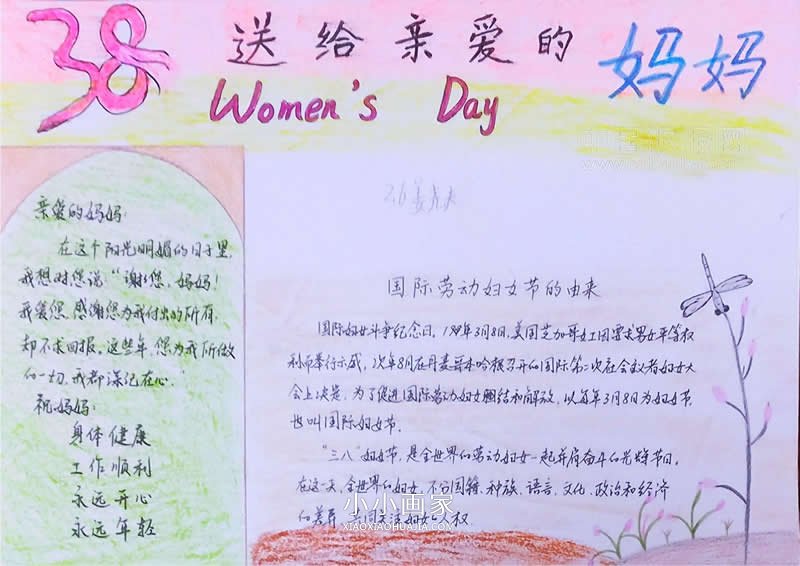 38
送给亲爱的
妈妈
Women's Day
亲爱的妈妈:
在这个阳光明媚的日子里,
我想对您说:“谢谢您,妈妈!
我爱您,感谢您为我付出的所有,
却不求回报。这些年,您为我所做
的一切,我都深记在心。
祝妈妈:
身体健康
工作顺利
永远开心
永远年轻
国际劳动妇女节的由来
国际妇女斗争纪念日,1909年3月8日,美国芝加哥女工因要求男女平等权
利而举行示威,次年8月在丹麦哥本哈根召开的国际第二次社会主义者妇女大
会上决定,为了促进国际劳动妇女团结和解放,以每年3月8日为妇女节,
也叫国际妇女节。
“三八”妇女节,是全世界的劳动妇女一起并肩奋斗的光辉节日。
在这一天,全世界的妇女,不分国籍、种族、语言、文化、政治和经济
的差异,共同关注妇女的人权。
小小画家
XIAOXIAOHUAJIA.COM